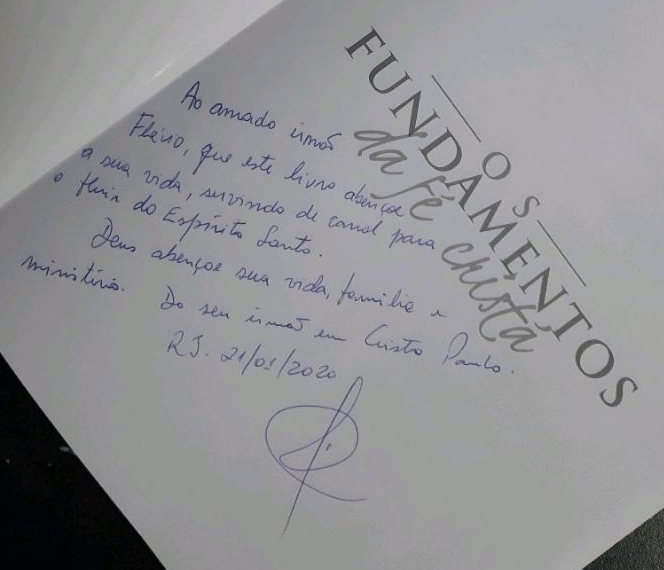 OS
FUNDAMENTOS
da fé cristã
Ao amado irmão
Flávio, que este livro abençoe
a sua vida, servindo de canal para
o fluir do Espírito Santo.
Deus abençoe sua vida, família e
ministério. Do seu irmão em Cristo Paulo.
RJ. 21/01/2020